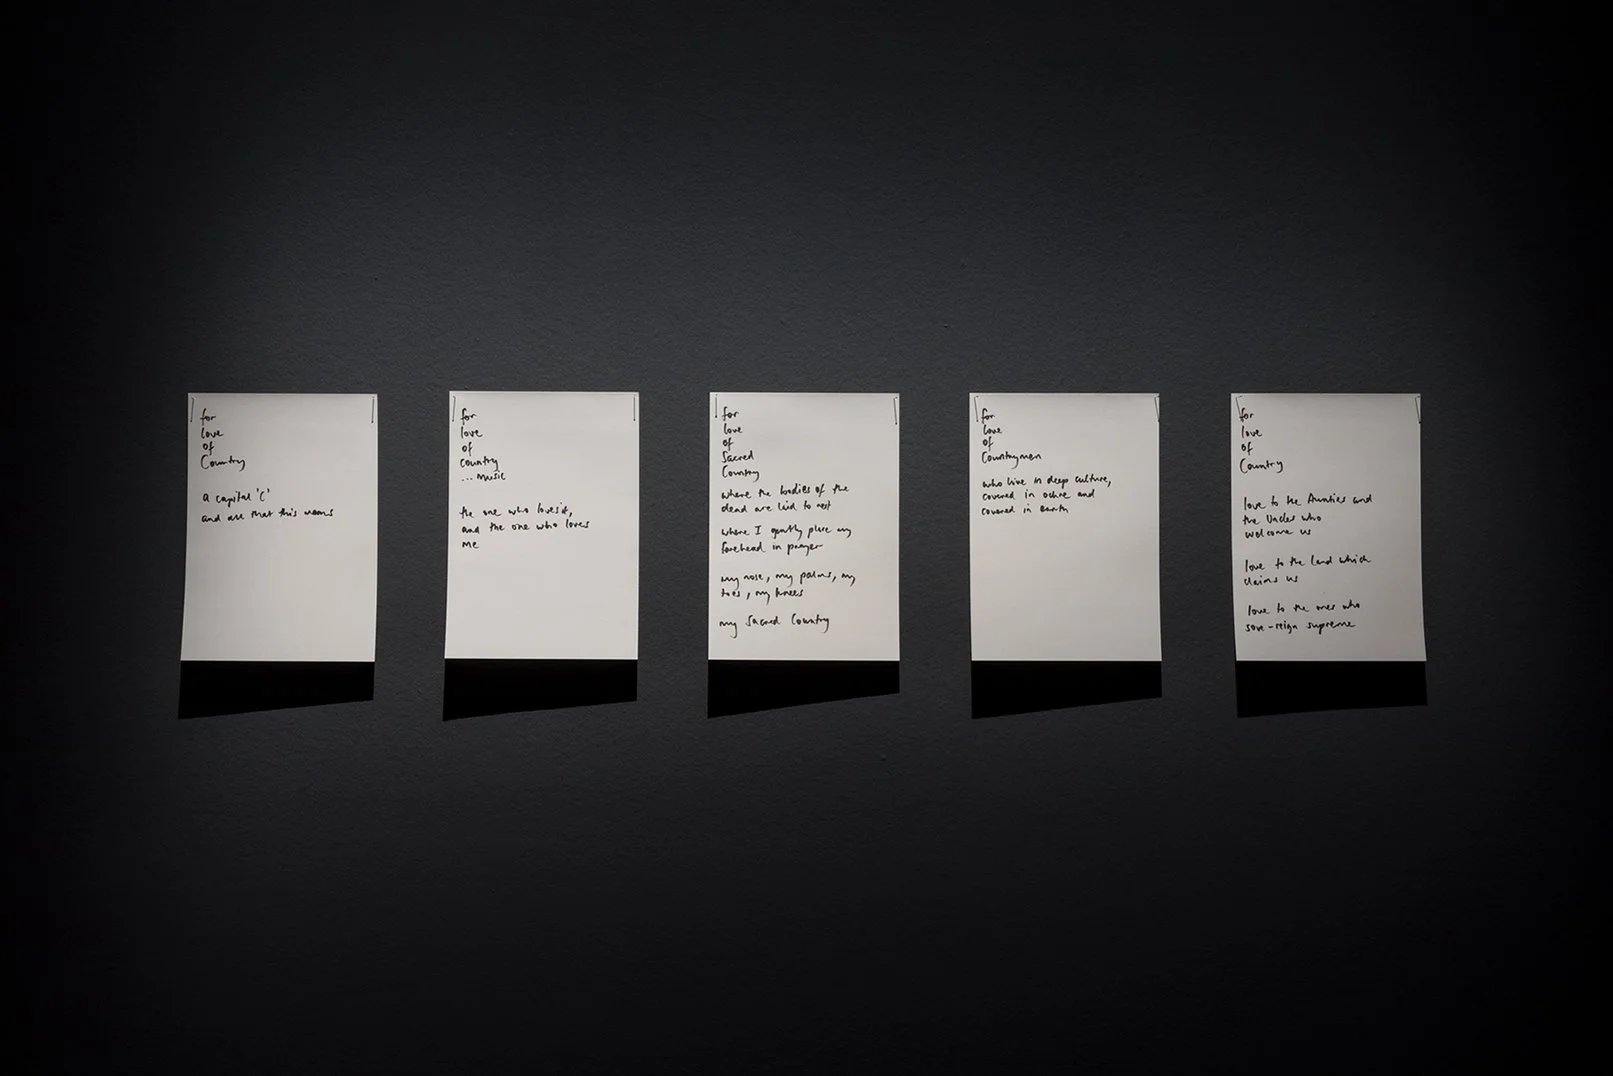 for
love
of
Country
a capital 'C'
and all that this means
for
love
of
country
... music
the one who loves it,
and the one who loves
me
for
love
of
Sacred
Country
where the bodies of the
dead are laid to rest
where I gently place my
forehead in prayer
my nose, my palms, my
toes, my knees
my Sacred Country
for
love
of
Countrymen
who live in deep culture,
covered in ochre and
covered in earth
for
love
of
Country
love to the Aunties and
the Uncles who
welcome us
love to the land which
claims us
love to the ones who
sove-reign supreme